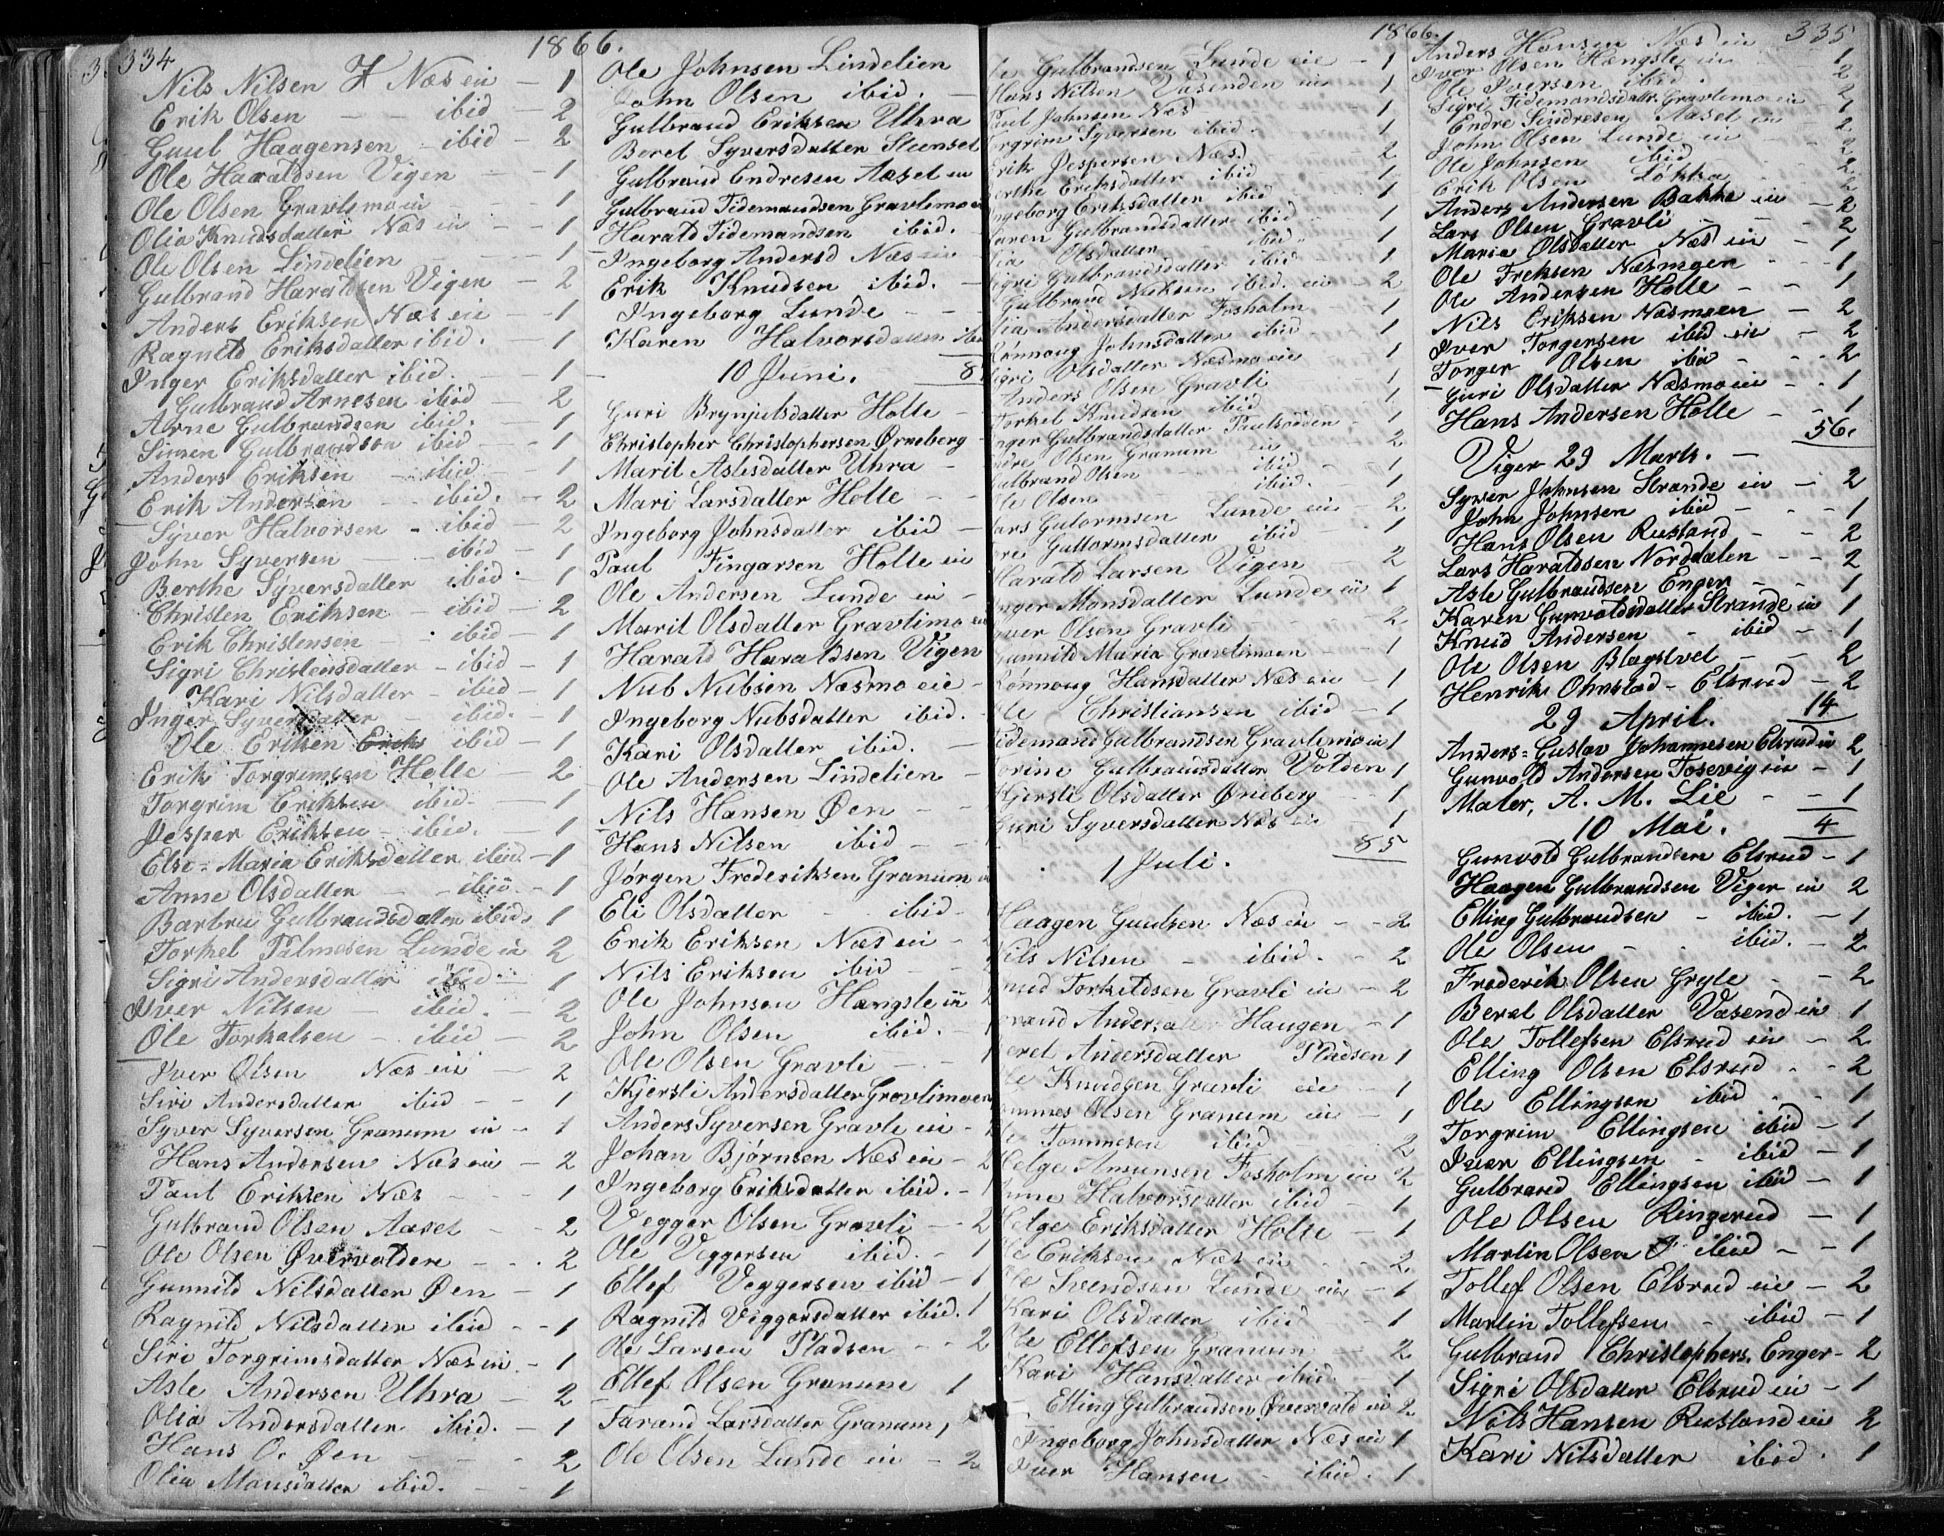 334
1866.
Nils Nilsen Næs eie — 1
Erik Olsen — — ibid 2
Guul Haagensen — ibid — 2
Ole Haraldsen Vigen — — 1
Ole Olsen Gravlimoin — — 1
Olia Knudsdatter Næs ein — — 1
Ole Olsen Lindelien — 1
Gulbrand Haraldsen Viger — 2
Anders Eriksen Næs eie — 1
Ragnild Eriksdatter ibid. — 1
Inger Eriksdatter ibid. — 1
Gulbrand Arnesen ibid — 2
Arne Gulbrandsen ibid. — 1
Simen Gulbrandsen ibid — 1
Anders Eriksen — ibid — 1
Erik Andersen — ibid. — 2
Syver Halvorsen - ibid 2
John Syversen — ibid — 1
Berthe Syversdatter ibid. 1
Christen Eriksen — ibid — 2
Erik Christensen . ibid — 1
Sigri Christensdatter — ibid — 1
Kari Nilsdatter — ibid — 1
Inger Syversdatter — ibid. — 1
Ole Eriksen ibid — 1
Erik Torgrimsen Holte — 2
Torgrim Eriksen ibid. — 1
Jesper Eriksen — ibid. — 1
Else-Maria Eriksdatter ibid — 1
Anne Olsdatter — — ibid. — 1
Barbru Gulbrandsdatter ibid. 1
Torkel Palmesen Lunde ein 2
Sigri Andersdatter ibid — 1
Iver Nilsen — ibid. — 2
Ole Torkelsen — ibid — 2
Iver Olsen Næs ein — 2
Siri Andersdatter ibid — — 1
Syver Syversen Granum ein — 1
Hans Andersen Næs ein — 2
Paul Eriksen Næs — — 1
Gulbrand Olsen Aasel — — 2
Ole Olsen Øvervolden — — 2
Gunnild Nilsdatter Øen — 1
Ragnild Nilsdatter ibid — — 1
Siri Torgrimsdatter Næs ein — 1
Asle Andersen Uhra — — 2
Olia Andersdatter ibid. — 1
Hans O. Øen — — — 2
Olia Monsdatter ibid. — — 1
Ole Johnsen Lindelien
John Olsen ibid. —
Gulbrand Eriksen Uhra
Beret Syversdatter
Gulbrand Endresen Aasel ein
Gulbrand Tidemandsen Gravlimo
Harald Tidemandsen ibid. —
Ingeborg Andersd Næs ein
Erik Knudsen ibid. —
Ingeborg Lunde — — —
Karen Halvorsdatter
— 10 Juni. 8
Guri Brynjulsdatter Holte —
Christopher Christophersen Ørneberg —
Marit Aslesdatter Uhra —
Mari Larsdatter Holte — —
Ingeborg Johnsdatter ibid —
Paul Fingarsen Holte ein
Ole Andersen Lunde ein —
Marit Olsdatter Gravlimo
Harald Haraldsen Vigen
Nub Nubsen Næsmo eie —
Ingeborg Nubsdatter ibid.
Kari Olsdatter ibid. —
Ole Andersen Lindelien —
Nils Hansen Øen — —
Hans Nilsen ibid — —
Jørgen Frederiksen Granum
Eli Olsdatter — ibid —
Erik Eriksen Næs ein —
Nils Eriksen ibid —
Ole Johnsen Hængsle ein
John Olsen ibid. —
Ole Olsen Gravli — —
Kjersti Andersdatter Gravlimoen
Anders Syversen Gravli ein —
Johan Bjørnsen Næs ein — 2
Ingeborg Eriksdatter ibid. — 1
Vegger Olsen Gravli — — 2
Ole Veggersen ibid. — 1
Ellef Veggersen ibid — 1
Ragnild Viggersdatter ibid. 1
Ole Larsen Pladsen — — 2
Ellef Olsen Granum 1
Tarand Larsdatter Granum 1
Ole Olsen Lunde ein — 2
1866.
Gulbrandsen Lunde eie — 1
Hans Nilsen Vasenden ein — 1
Paul Johnsen Næs — 1
Syversen ibid. 1
Erik Jespersen Næs. — 2
Berthe Eriksdatter ibid — 1
Ingeborg Eriksdatter ibid 1
Karen Gulbrandsdatter ibid — 1
Olsdatter — ibid — 1
Sigri Gulbrandsdatter ibid — 1
Gulbrand Nubsen ibid. ein — 2
Andersdatter Fosholm 1
Rønnoug Johnsdatter ibid 1
Sigri Olsdatter Næsmo ein 1
Anders Olsen Gravli 1
Torkel Knudsen ibid — 1
Inger Gulbrandsdatter — 1
Endre Olsen Granum ein — 2
Gulbrand Olsen — ibid — 1
Ole Olsen — ibid. — 1
Lars Gutormsen Lunde ein — 2
Guttormsdatter ibid — 1
Harald Larsen Vigen — 2
Inger Monsdatter Lunde ein 1
Syver Olsen Gravli — — 2
Gunnild Maria Gravlimoen — — 1
Rønnoug Hansdatter Næs ein — 1
Ole Christiansen ibid — 1
Tidemand Gulbrandsen Gravlimo ein 1
Torine Gulbrandsdatter Volden 1
Kjersti Olsdatter Ørneberg — — 1
Guri Syversdatter Næs ein — 1
85
1 Juli.
Haagen Guulsen Næs ein — — 2
Nils Nilsen — ibid. — 2
Knud Torkildsen Gravli ein — 2
Haugen — 1
Beret Andersdatter Pladsen 1
Ole Knudsen Gravli eie — 1
Tommes Olsen Granum ein — 1
Ole Tommesen ibid — 2
Helge Amunsen Fosholm ein 2
Anne Halvorsdatter ibid — 1
Helge Eriksdatter Holte — 1
Ole Eriksen Næs ein — — 2
Ole Svendsen Lunde ein — 1
Kari Olsdatter ibid — 1
Ole Ellefsen Granum — — 2
Kari Hansdatter ibid. — 1
Elling Gulbrandsen Øvervold ein 2
Ingeborg Johnsdatter Næs ein 1
Iver Hansen — ibid. 1
335
Anders Hansen Næs ein — 1
Iver Olsen Hængsle ein — 2
Ole Iversen ibid. — 2
Sigri Tidemandsdatt. Gravlimo ein — 1
Endre Sindresen Aasel ein — 2
John Olsen Lunde ein — 2
Ole Johnsen ibid — 2
Erik Olsen Løkka — 2
Anders Andersen Bakke ein — 2
Lars Olsen Gravli — 2
Maria Olsdatter Næs ein — 1
Ole Næsmoen — — 1
Ole Andersen Holte — — 1
Nils Eriksen Næsmoen — 2
Iver Torgersen ibid ein — 2
Torger Olsen ibid — — 2
Guri Olsdatter Næsmo ein — . 1
Hans Andersen Holte — — 1
56.
Viger 29 Marts. —
Syver Johnsen Strande ein — 2
John Johnsen ibid — — 1
Hans Olsen Rusland — — 2
Lars Haraldsen Nordalen — — 2
Asle Gulbrandsen Enger — — 1
Karen Gunvoldsdatter Strande ein 1
Knud Andersen — ibid — — 1
Ole Olsen Blagstvet — — 2
Henrik Ohnstad — Elsrud — 2
14
29 April.
Anders-Gustav Johannesen Elsrud ein 2
Gunvold Andersen Tosevig ein — 1
Maler, A. M. Lie — — 1
10 Mai. 4
Gunvold Gulbrandsen Elsrud — 1
Haagen Gulbrandsen Viger ein 2
Elling Gulbrandsen — ibid. — 1
Ole Olsen — ibid. — 2
Frederik Olsen Gryte — — 2
Beret Olsdatter Vasend ein 1
Ole Tollefsen Elsrud ein — 2
Elling Olsen Elsrud . — 2
Ole Ellingsen ibid — . 1
Torgrim Ellingsen ibid — 1
Iver Ellingsen — ibid — 1
Gulbrand Ellingsen ibid — 1
Ole Olsen Ringerud — 1
Martin Olsen ibid — — 1
Tollef Olsen Elsrud ein — 2
Martin Tollefsen — ibid — 1
Gulbrand Christophers. Enger — 2
Sigri Olsdatter Elsrud ein — 1
Nils Hansen Rusland ein 2
Kari Nilsdatter ibid . 1